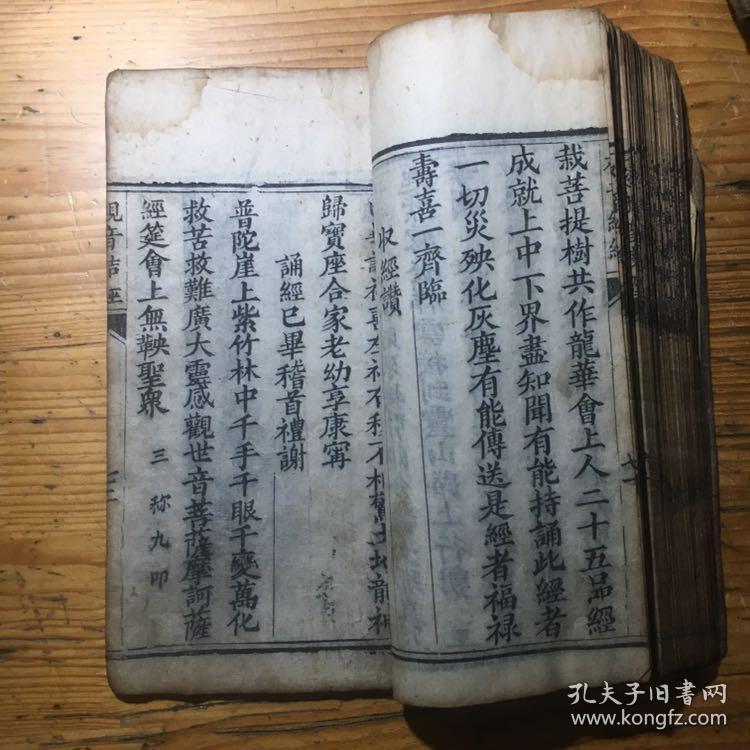 栽菩提樹共作龍華會上人二十五品經
成就上中下界盡知聞有能持誦此經者
一切災殃化灰塵有能傳送是經者福禄
壽喜一齊臨
收經讚
歸寶座合家老幼享康寗
誦經已畢稽首禮謝
普陀崖上紫竹林中千手千眼千變萬化
救苦救難廣大靈感觀世音菩薩摩訶薩
經筵會上無鞅聖衆 三称九叩
觀音
孔夫子旧書网
www.kongfz.com